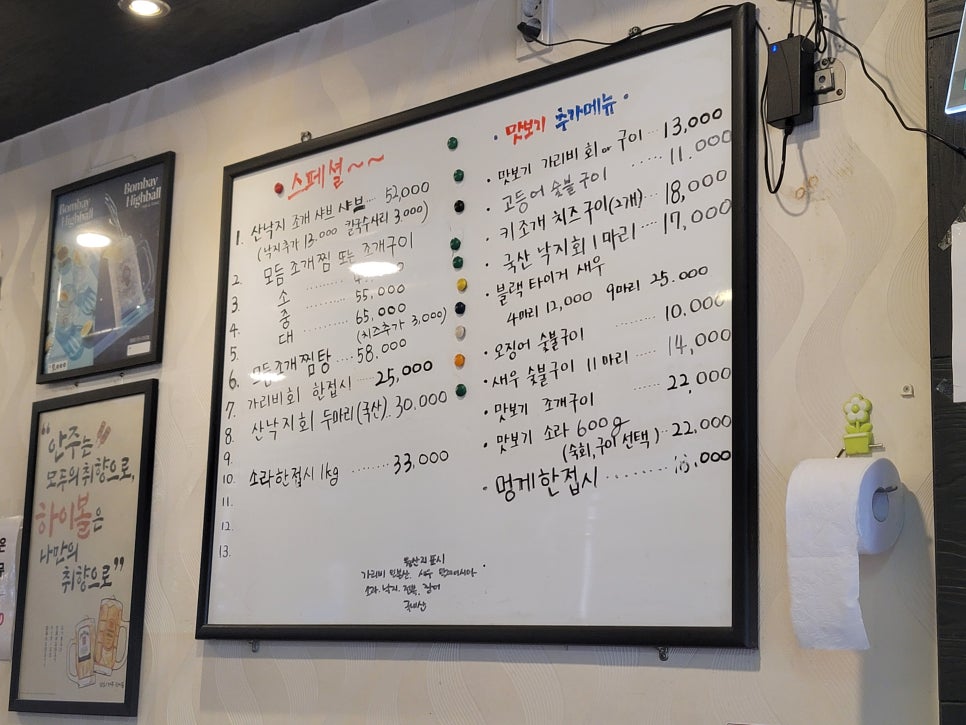 Bombay
Highball
Bombay
Highball
"안주는
모두의 취향으로,
하이볼은
나만의
취향으로"
스페셜~~
1. 산낙지 조개 샤브샤브 .... 52,000
(낙지추가 13.000 칼국수사리 3,000)
2. 모듬 조개찜 또는 조개구이
3. 소 ........
4. 중 ........ 55,000
5. 대 .......... 65,000
(치즈추가 3,000)
6. 모듬조개찜탕 .... 58.000
7. 가리비회 한접시 ..... 25,000
8. 산낙지회 두마리(국산).. 30.000
9.
10. 소라한접시 1kg ........ 33,000
11.
12.
13.
· 맛보기 추가메뉴 ·
· 맛보기 가리비 회 or 구이 ... 13,000
· 고등어 숯불구이 ...... 11.000
· 키조개 치즈구이(2개) ... 18,000
· 국산 낙지회 1마리 .... 17,000
· 블랙타이거 새우
4마리 12,000 9마리 25.000
· 오징어 숯불구이 ........ 10,000
· 새우 숯불구이 11마리 ...... 14,000
· 맛보기 조개구이 ...... 22,000
· 맛보기 소라 600g
(숙회,구이 선택) ... 22,000
· 멍게한접시 ........ ,000
원산지 표시
가리비 일본산. 새우 말레이시아
소라. 낙지. 전복.
국내산